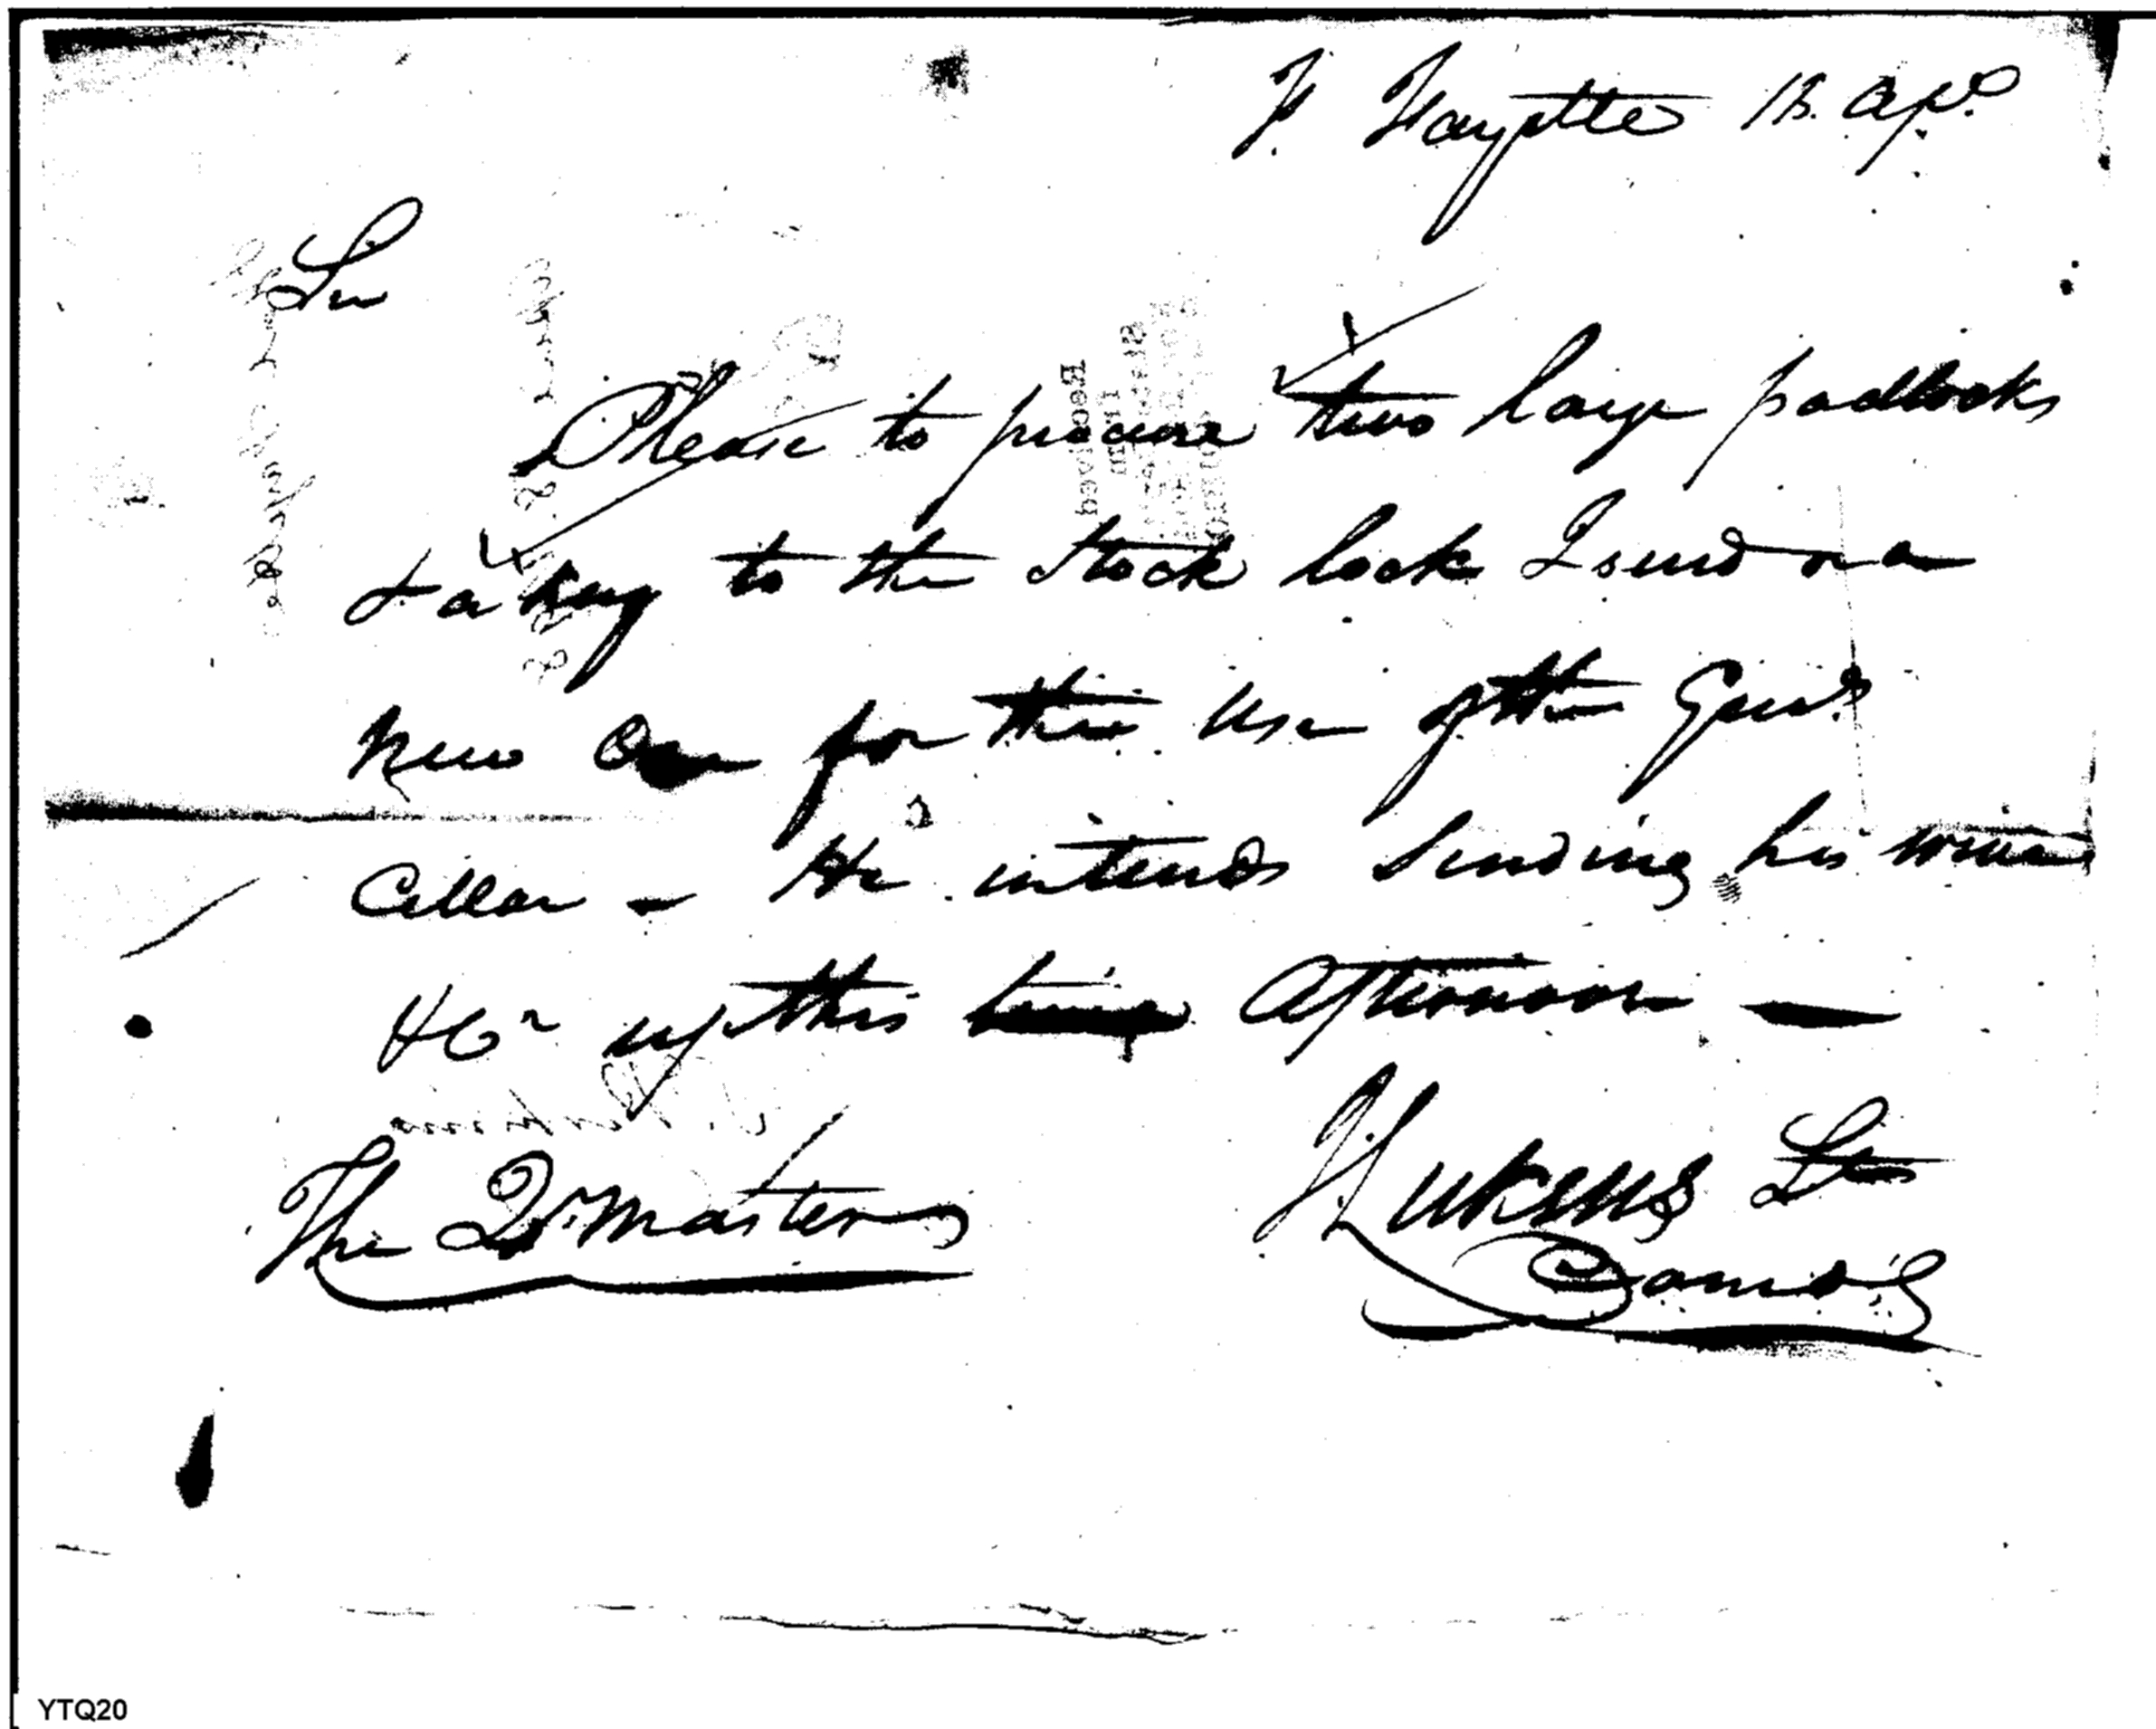 F. Fayette 18. Apl.
Sir
Please to procure two large padlocks
& a key to the stock lock I send or a
new One for the use of the Genls
Cellar — He intends sending his wines
&Ca up this Afternoon —
The Qr. Masters
J Lukens Lt
Comdg
YTQ20